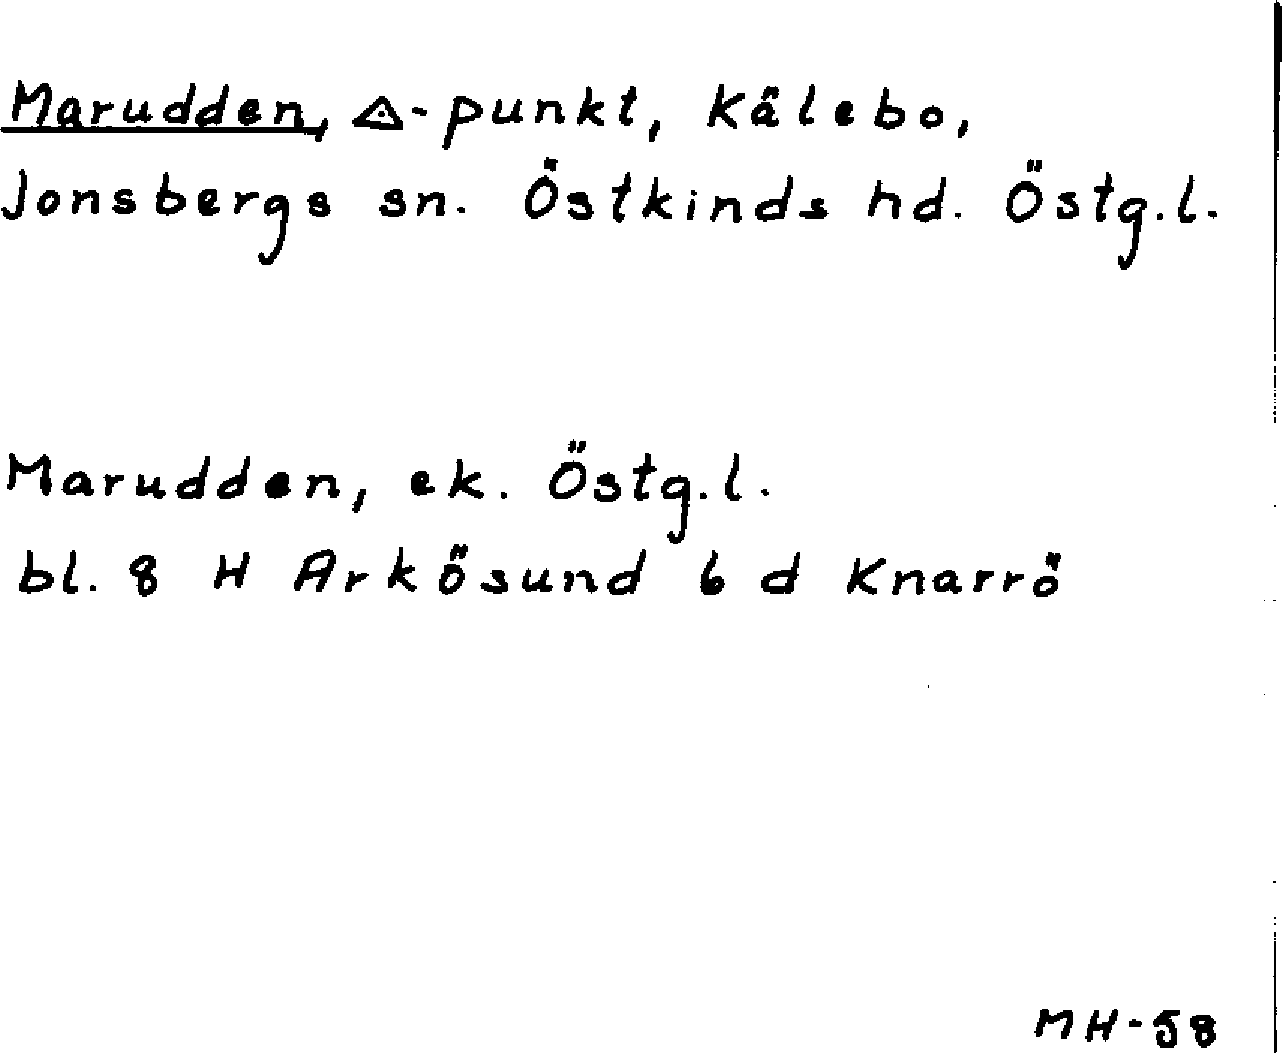 Marudden, ◬-punkt, Kålebo,
Jonsbergs sn. Östkinds hd. Östg.l.
Marudden, ek. Östg.l.
bl. 8 H Arkösund 6 d Knarrö
MH-58